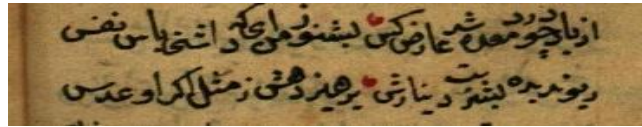 از باد چو درد معده شد عارض کس بشنو ز من ای که داشتی پاس نفس
ریوند بده بشربت دینارش پرهیز دهش ز مثل اکرا و عدس